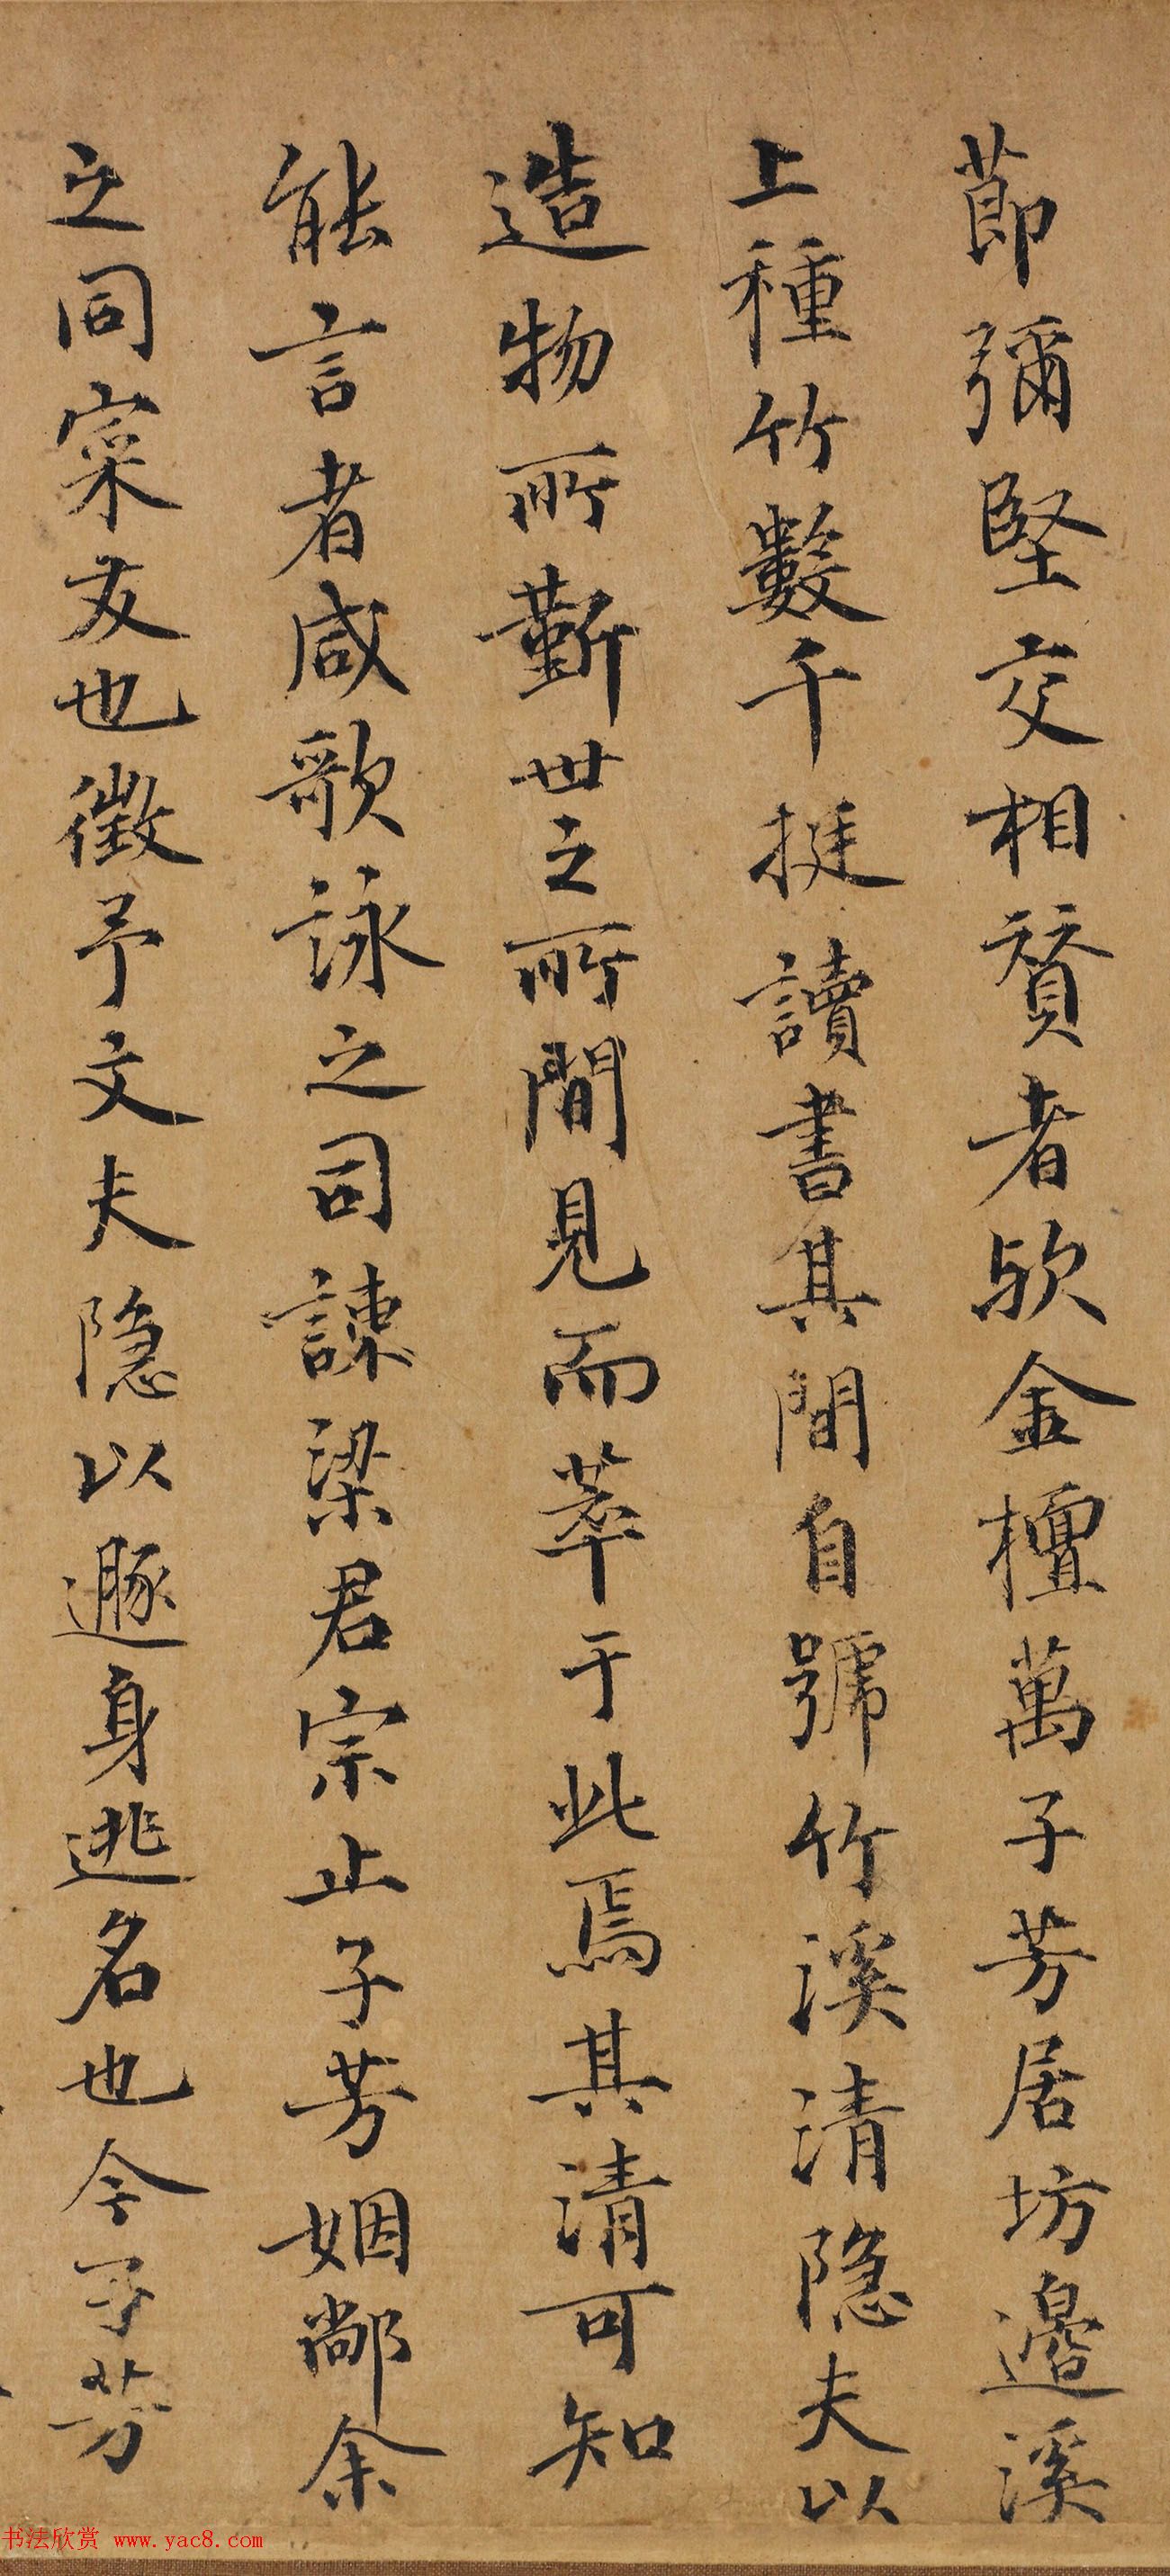 節彌堅交相贊者歟金檀萬子芳居坊邊溪
上種竹數千挺讀書其間自號竹溪清隱夫以
造物所靳世之所間見而萃于此焉其清可知
能言者咸歌詠之司諫梁君宗止子芳姻鄰余
之同寀友也徵予文夫隱以遯身逃名也今子芳
书法欣赏 www.yac8.com